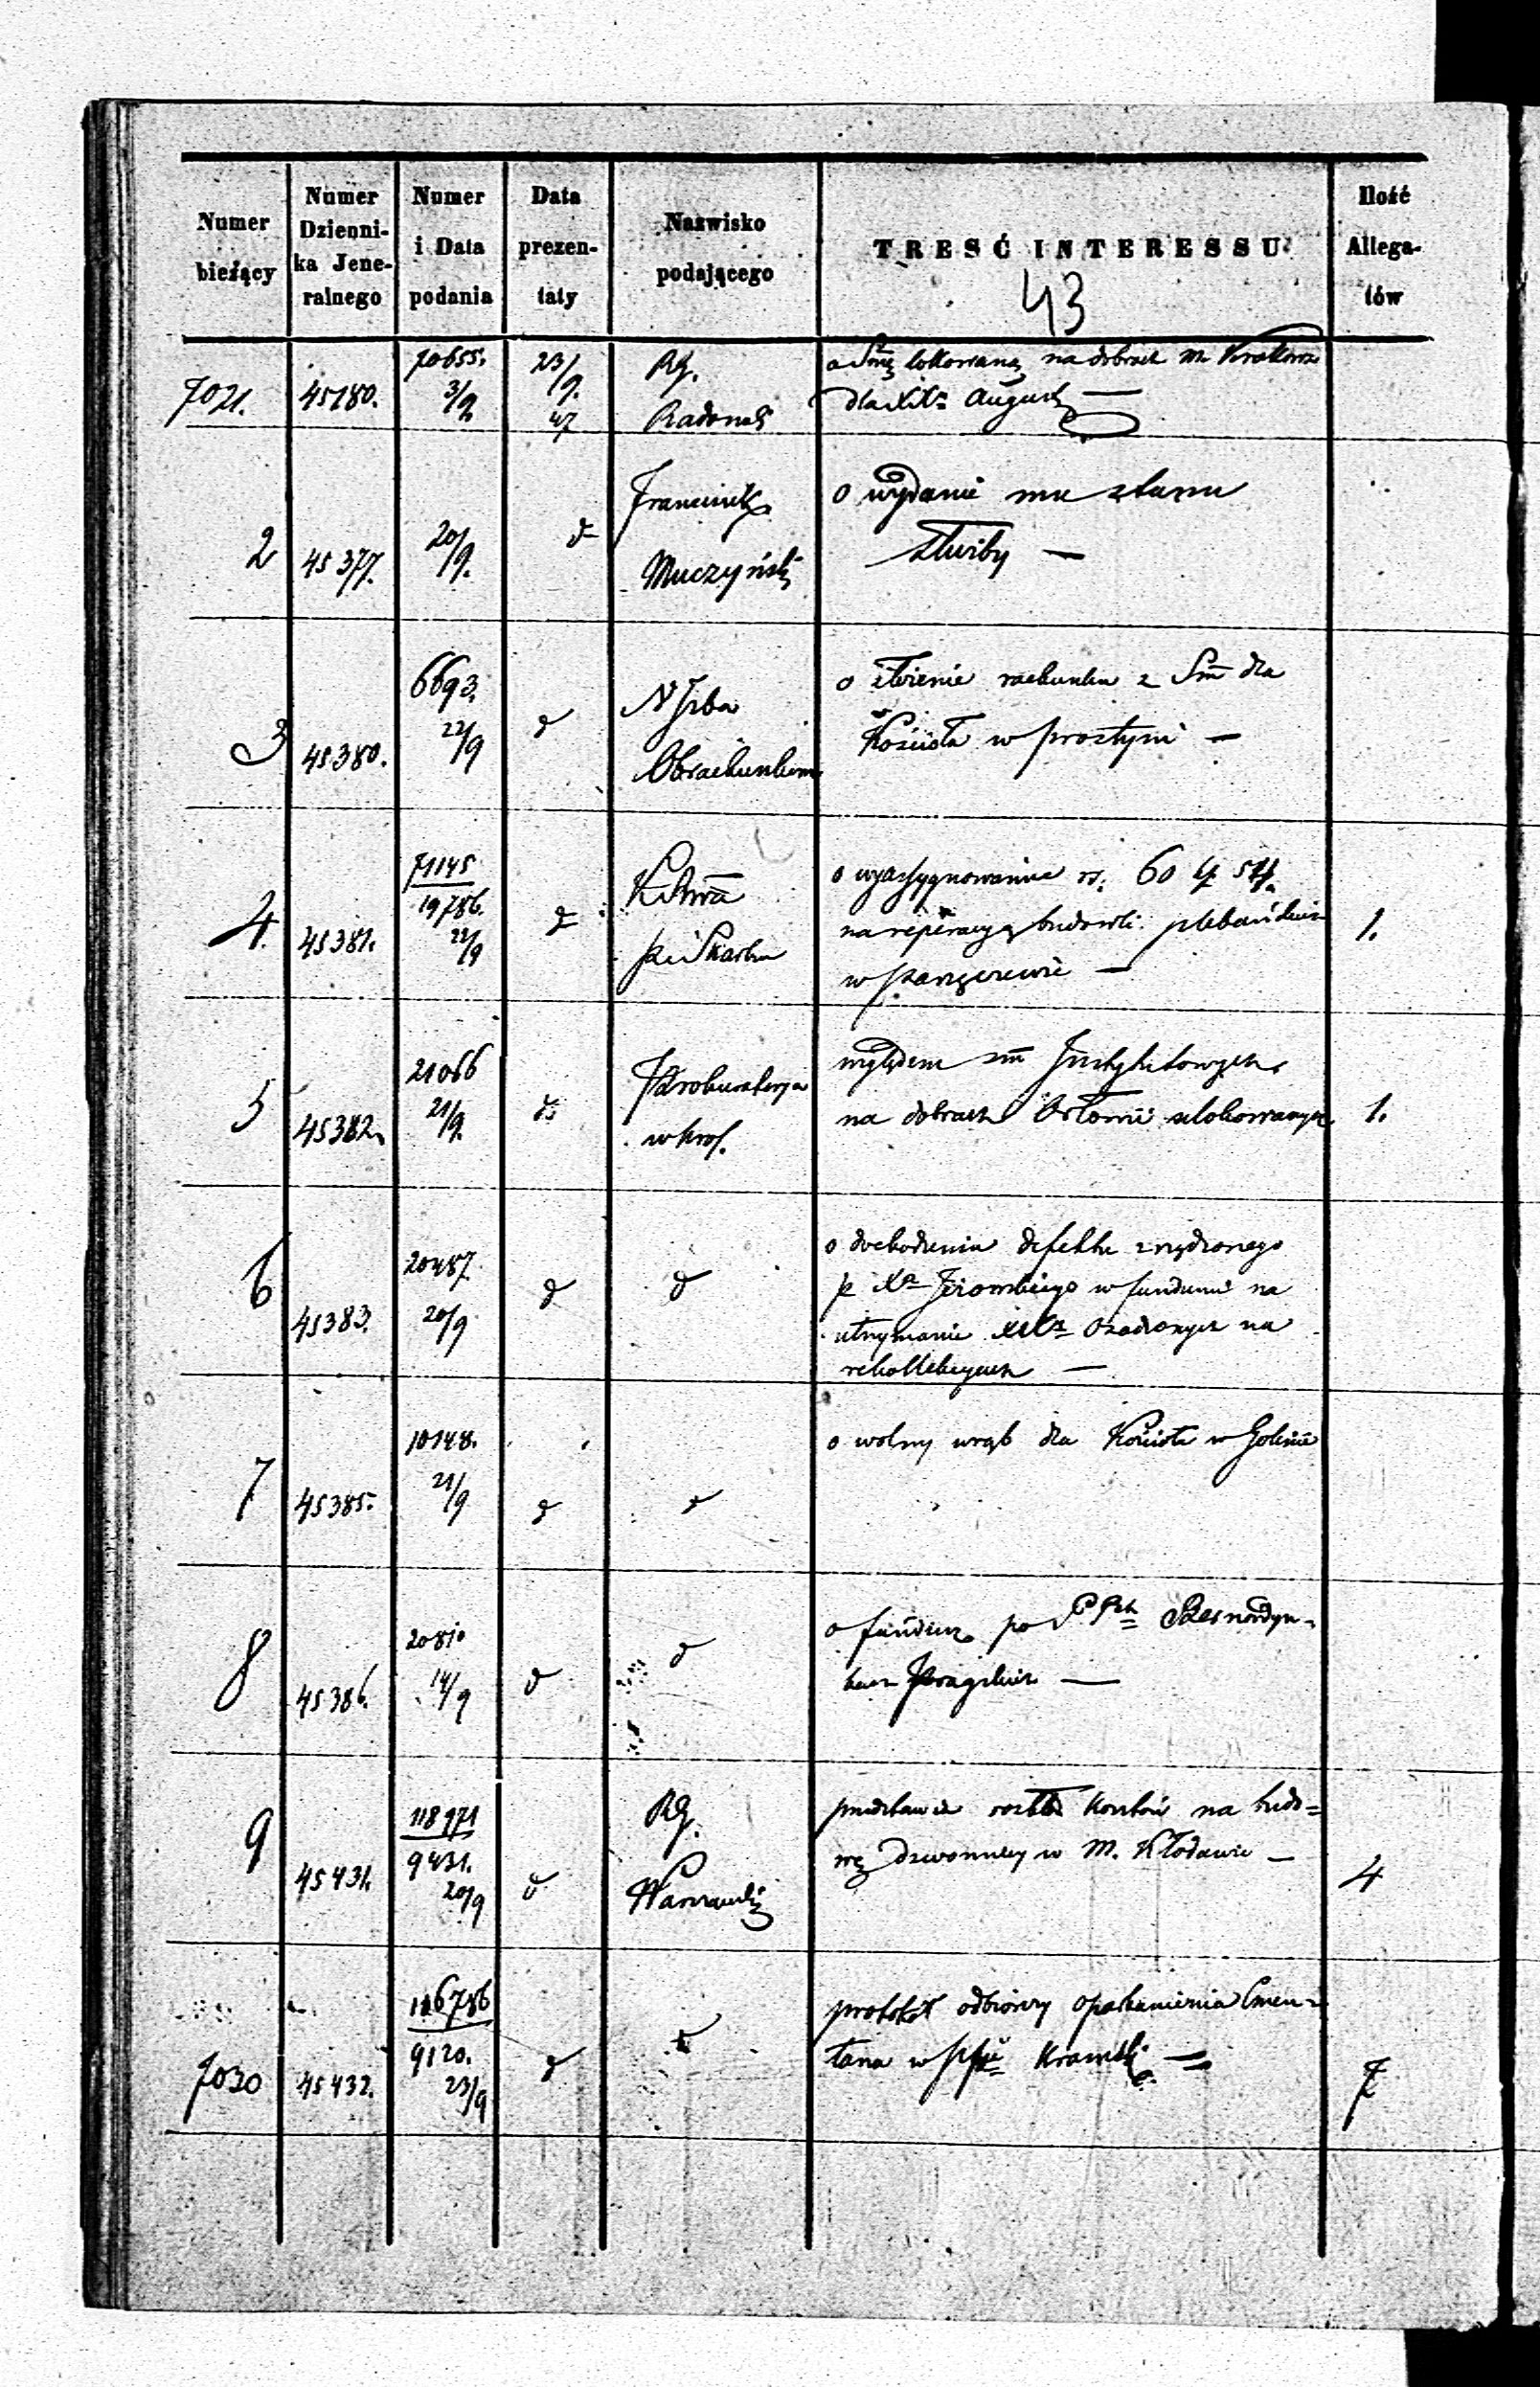 Numer bieżący
Numer Dzienni-ka Jene-ralnego
Numer i Data podania
Data prezen-taty
Nazwisko podającego
TREŚĆ INTERESSU
Ilość Allega-tów
43
7021. 45180. 70655. 3/9 23/9. 47 RG. Radomsk
o Smę lokowaną na dobrach
dla August
2 45377. 20/9. d Franciszek Muczyński o wydanie mu stanu
służby —
3 45380. 6693. 22/9 d N Izba Obrachunkowa
o złożenie rachunku z Sm dla
Kościoła w prostyni —
4. 45381. 71145 19786. 22/9 d K Skarbu
o wyassygnowanie rs. 60 k 54 1.
na reperacyą budowli plebańskich
w —
5 45382. 21066 21/9. d Prokuratorya w Krol.
względem sm Instytutowych
na dobrach ulokowanych 1.
6 45383. 20487. 20/9 d d
o dochodzenie defektu zrządzonego
p Xa w funduszu na
utrzymanie osadzonych na
rekollekcyach —
7 45385. 10148. 21/9 d d o wolny wrąb dla Kościoła w Golinie
8 45386. 20810 14/9 d d o fundusz po PP Bernardyn-
kach Pragskich —
9 45431. 118971 9431. 20/9 d RG. Warszawski
przedstawia rozkład kosztów na budo=
wę dzwonnicy w M. Kłodawie — 4
7030 45432. 116786 9120. 23/9 d d
protokół odbiorczy oparkanienia Cmen-
tarza w Kramsk — 7